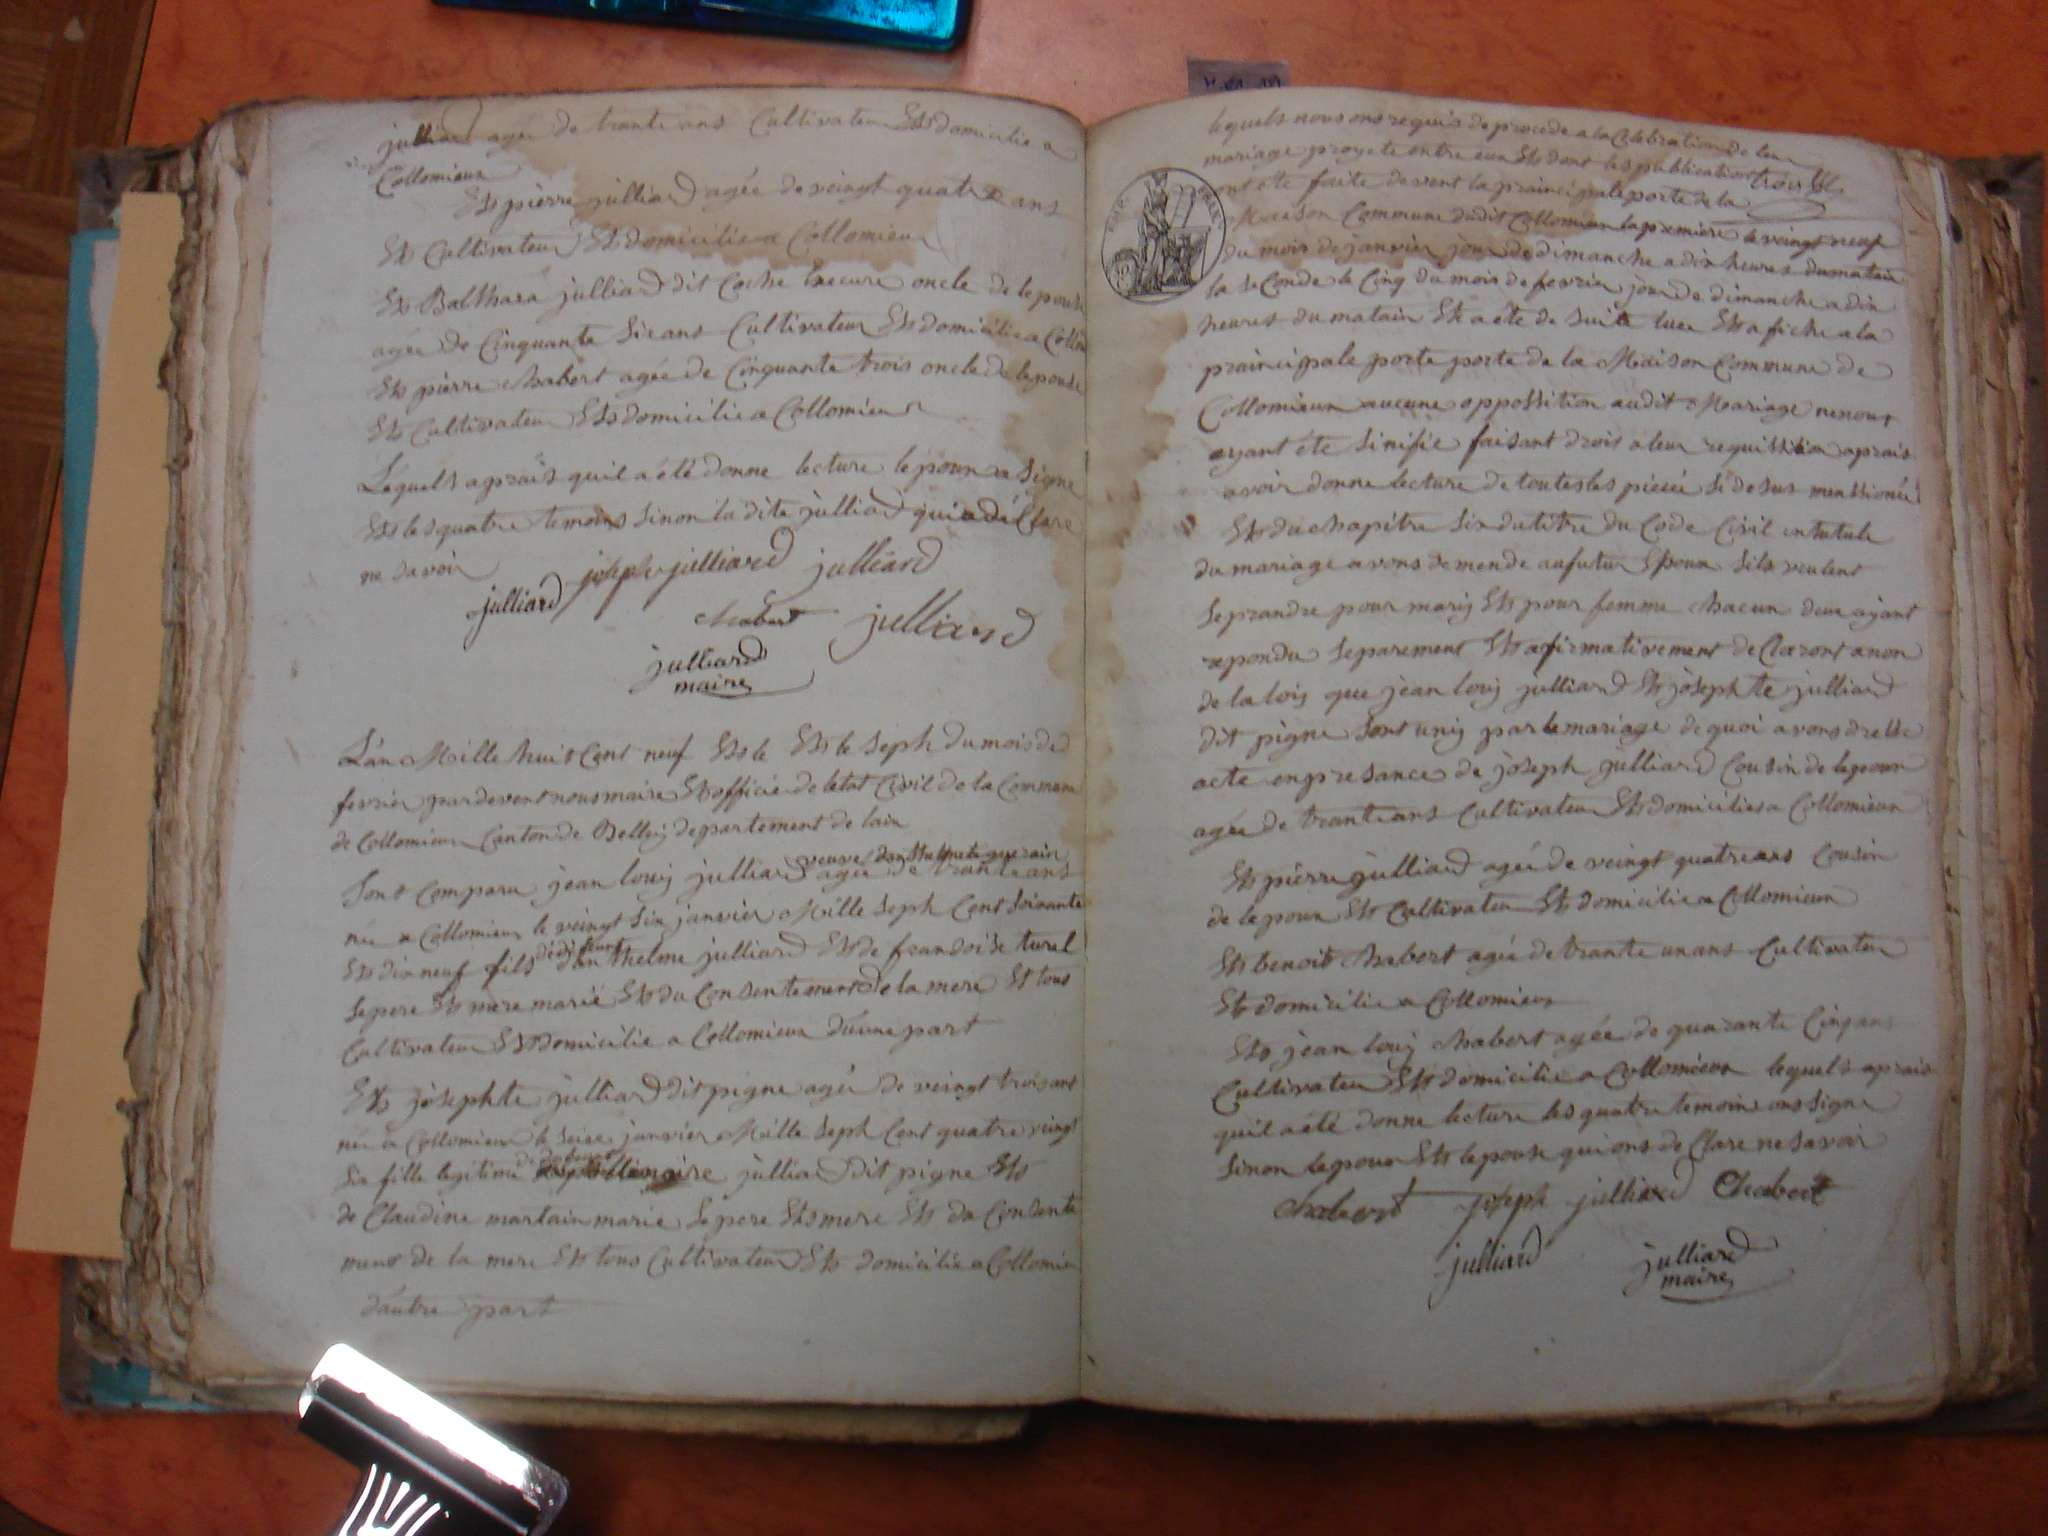 julliard agée de trante ans Cultivateur Et domicilie a
Collomieux
Et pierre julliard agée de veingt quatre ans
Et Cultivateur Et domicilie a Collomieux
Et Balthasa julliard dit Coche oncle de lepouse
agée de Cinquante Sixans Cultivateur Et domicilie a Collom
Et pierre Chabert agée de Cinquante trois oncle de lepouse
Et Cultivateur Et domicilie a Collomieux
Lequels aprais quil a été donne lecture lepoux a Signe
Et les quatre temoins Sinon la dite julliard qui a dé Clare
ne Savoir
joseph julliard julliard
julliard
Chabert julliard
julliard
maire
Lan Mille huit Cent neuf Et le Et le Seph du mois de
fevrier pardevent nous maire Et officié de letat Civil de la Commune
de Collomieux Canton de Belley departement de lain
Sont Comparu jean louis julliard veuve agée de trante ans
née a Collomieux le veingt Six janvier Mille Seph Cent Soixante
Et dixneuf fils dédefeunt danthelme julliard Et de francoise turel
Sepere Et mere marié Et du Consentement de la mere Et tous
Cultivateur Et domicilie a Collomieux d'une part
Et josephte julliard dit pigne agée de veingt troisans
née a Collomieux le Seize janvier Mille Seph Cent quatre veingt
Six fille legitime julliard dit pigne Et
de Claudine martain marié Sepere Et mere Et du Consente
ment de la mere Et tous Cultivateur Et domicilie a Collomieu
d'autre part
lequels nous ons requis de procede a la Celebration de leur
mariage proyete entre eux Et dont les publication trois
ont ete faite devent la praincipale porte de la
Maison Commune dudit Collomieux la premiere le veingt neuf
du mois de janvier jour de dimanche a dix heures du matain
la Seconde le Cinq du mois de fevrier jour de dimanche a dix
heures du matain Et a été de Suite luee Et afiche a la
praincipale porte porte de la Maison Commune de
Collomieux aucune oppossition audit Mariage ne nous
ayant éte Sinifie faisant droit a leur requisition aprais
avoir donne lecture de toutes les piecé Sidesus menssionée
Et du chapitre Six du titre du Code Civil intutule
du mariage avons demende au futur Epoux Sils veulent
Seprandre pour mary Et pour femme chacun deux ayant
repondu Separement Et afirmativement de Claront a non
de la loiy que jean louij julliard Et josephte julliard
dit pigne Sont unij par le mariage de quoi avons dresse
acte enpresance de joseph julliard Cousin de lepoux
agée de trante ans Cultivateur Et domicilie a Collomieux
Et pierre julliard agée de veingt quatre ans Cousin
de lepoux Et Cultivateur Et domicilie a Collomieux
Et benoit Chabert agée de trante un ans Cultivateur
Et domicilie a Collomieux
Et jean louij Chabert agée de quarante Cinq ans
Cultivateur Et domicilie a Collomieux lequels aprais
quil a été donne lecture les quatre temoin ons Signe
Sinon lepoux Et lepouse qui ons de Clare ne Savoir
Chabert joseph julliard Chabert
julliard julliard
maire